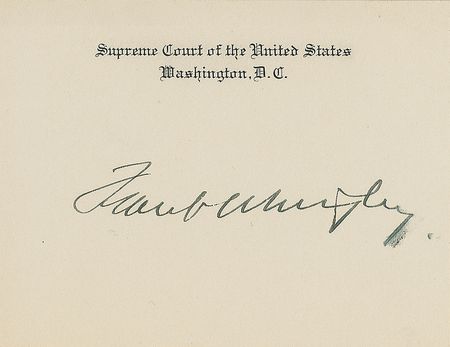 Supreme Court of the United States
Washington, D. C.
Frank Murphy